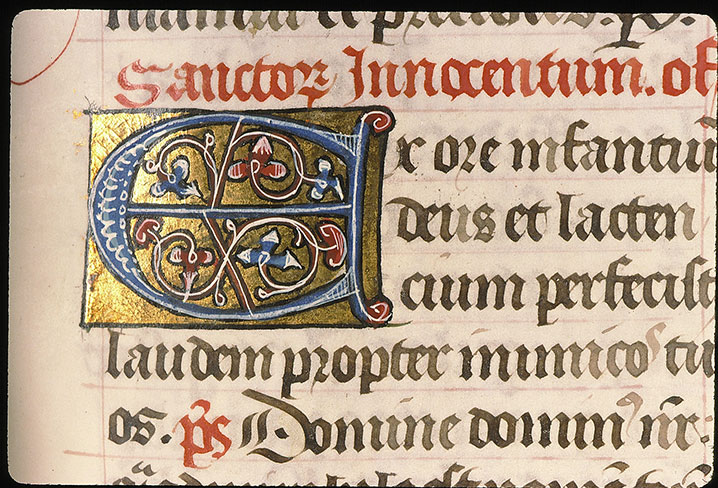 Sanctoꝝ Innocentum. of
Ex ore infantiū
deus et lacten
cium perfecist
laudem propter inimicos tu
os. p̄s Domine domin⁹ nr̄